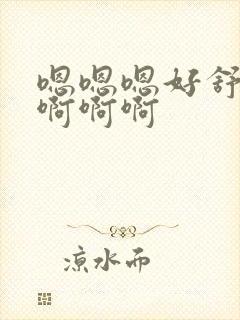 嗯嗯嗯好舒
啊啊啊
凉水而